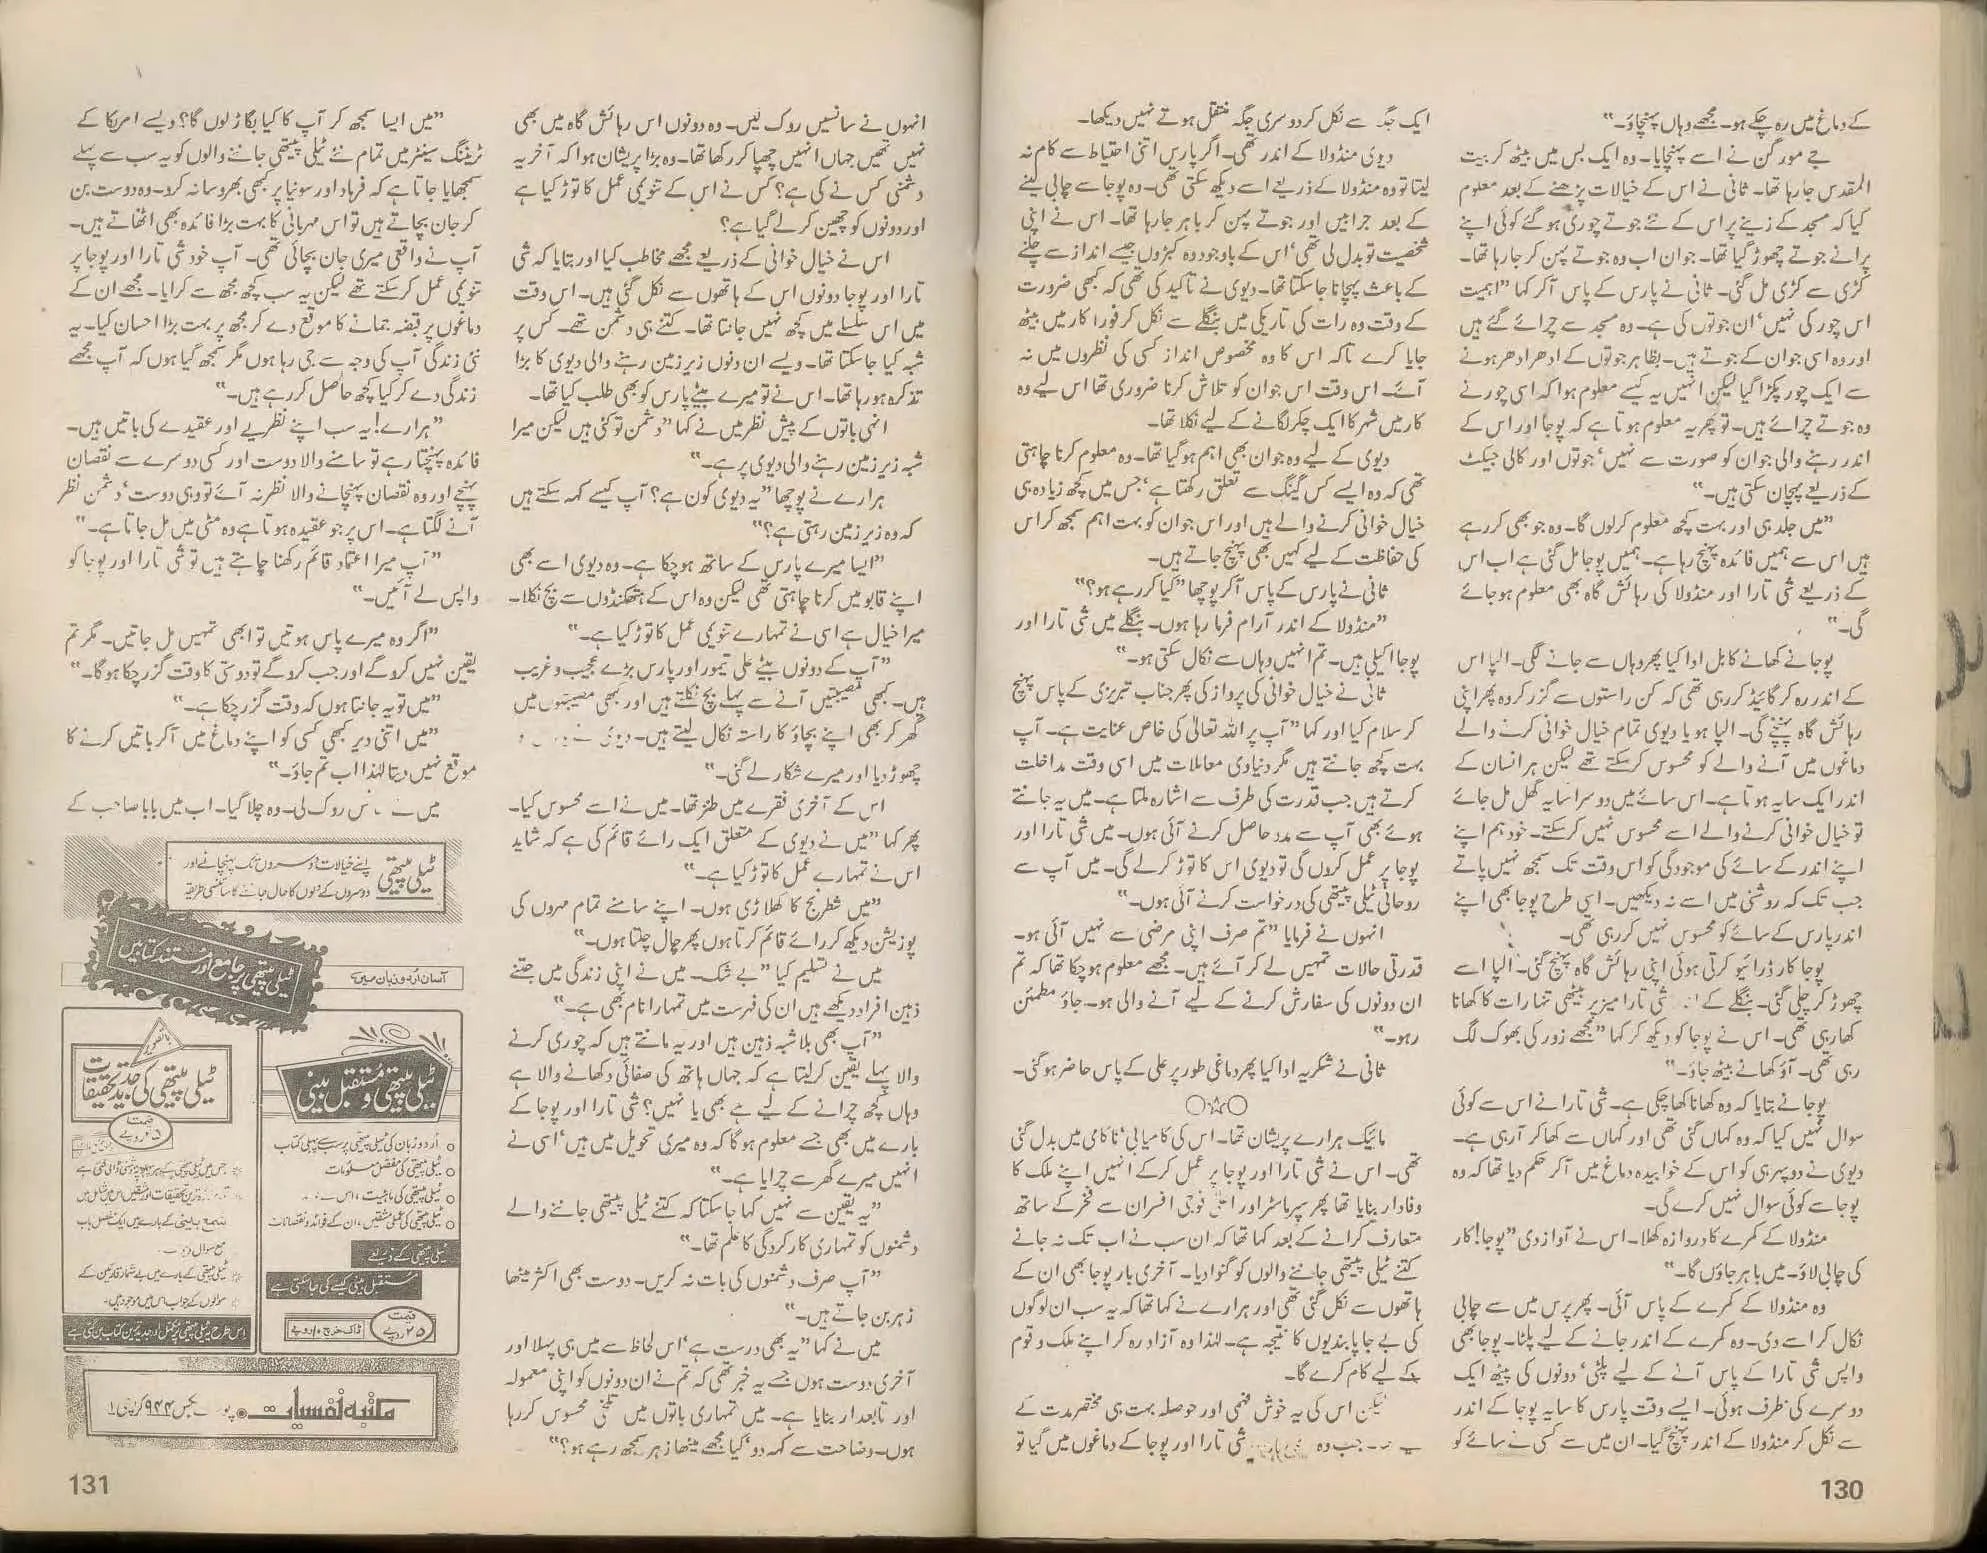 کے دماغ میں رہ چکے ہو۔ مجھے وہاں پہنچاؤ۔“
جے مورگن نے اسے پہنچایا۔ وہ ایک بس میں بیٹھ کر بیت
المقدس جا رہا تھا۔ ثانی نے اس کے خیالات پڑھنے کے بعد معلوم
کیا کہ مسجد کے زینے پر اس کے نئے جوتے چوری ہو گئے کوئی اپنے
پرانے جوتے چھوڑ گیا تھا۔ جوان اب وہ جوتے پہن کر جا رہا تھا۔
کڑی سے کڑی مل گئی۔ ثانی نے پارس کے پاس آکر کہا ”اہمیت
اس چور کی نہیں‘ ان جوتوں کی ہے۔ وہ مسجد سے چرائے گئے ہیں
اور وہ اسی جوان کے جوتے ہیں۔ بظاہر جوتوں کے ادھر ادھر ہونے
سے ایک چور پکڑا گیا لیکن انہیں یہ کیسے معلوم ہوا کہ اسی چور نے
وہ جوتے چرائے ہیں۔ تو پھر یہ معلوم ہوتا ہے کہ پوجا اور اس کے
اندر رہنے والی جوان کو صورت سے نہیں‘ جوتوں اور کالی جیکٹ
کے ذریعے پہچان سکتی ہیں۔“
”میں جلد ہی اور بہت کچھ معلوم کر لوں گا۔ وہ جو بھی کر رہے
ہیں اس سے ہمیں فائدہ پہنچ رہا ہے۔ ہمیں پوجا مل گئی ہے اب اس
کے ذریعے شی تارا اور منڈولا کی رہائش گاہ بھی معلوم ہو جائے
گی۔“
پوجا نے کھانے کا بل ادا کیا پھر وہاں سے جانے لگی۔ الپا اس
کے اندر رہ کر گائیڈ کر رہی تھی کہ کن راستوں سے گزر کر وہ پھر اپنی
رہائش گاہ پہنچے گی۔ الپا ہو یا دیوی تمام خیال خوانی کرنے والے
دماغوں میں آنے والے کو محسوس کر سکتے تھے لیکن ہر انسان کے
اندر ایک سایہ ہوتا ہے۔ اس سائے میں دوسرا سایہ گھل مل جائے
تو خیال خوانی کرنے والے اسے محسوس نہیں کر سکتے۔ خود ہم اپنے
اپنے اندر کے سائے کی موجودگی کو اس وقت تک سمجھ نہیں پاتے
جب تک کہ روشنی میں اسے نہ دیکھیں۔ اسی طرح پوجا بھی اپنے
اندر پارس کے سائے کو محسوس نہیں کر رہی تھی۔
پوجا کار ڈرائیو کرتی ہوئی اپنی رہائش گاہ پہنچ گئی۔ الپا اسے
چھوڑ کر چلی گئی۔ بنگلے کے شی تارا میز پر بیٹھی تنہا رات کا کھانا
کھا رہی تھی۔ اس نے پوجا کو دیکھ کر کہا ”مجھے زور کی بھوک لگ
رہی تھی۔ آؤ کھانے بیٹھ جاؤ۔“
پوجا نے بتایا کہ وہ کھانا کھا چکی ہے۔ شی تارا نے اس سے کوئی
سوال نہیں کیا کہ وہ کہاں گئی تھی اور کہاں سے کھا کر آ رہی ہے۔
دیوی نے دوپہر ہی کو اس کے خوابیدہ دماغ میں آکر حکم دیا تھا کہ وہ
پوجا سے کوئی سوال نہیں کرے گی۔
منڈولا کے کمرے کا دروازہ کھلا۔ اس نے آواز دی ”پوجا! کار
کی چابی لاؤ۔ میں باہر جاؤں گا۔“
وہ منڈولا کے کمرے کے پاس آئی۔ پھر پرس میں سے چابی
نکال کر اسے دی۔ وہ کمرے کے اندر جانے کے لیے پلٹا۔ پوجا بھی
واپس شی تارا کے پاس آنے کے لیے پلٹی‘ دونوں کی پیٹھ ایک
دوسرے کی طرف ہوئی۔ ایسے وقت پارس کا سایہ پوجا کے اندر
سے نکل کر منڈولا کے اندر پہنچ گیا۔ ان میں سے کسی نے سائے کو
ایک جگہ سے نکل کر دوسری جگہ منتقل ہوتے نہیں دیکھا۔
دیوی منڈولا کے اندر تھی۔ اگر پارس اتنی احتیاط سے کام نہ
لیتا تو وہ منڈولا کے ذریعے اسے دیکھ سکتی تھی۔ وہ پوجا سے چابی لینے
کے بعد جرابیں اور جوتے پہن کر باہر جا رہا تھا۔ اس نے اپنی
شخصیت تو بدل لی تھی‘ اس کے باوجود وہ کبڑوں جیسے انداز سے چلنے
کے باعث پہچانا جا سکتا تھا۔ دیوی نے تاکید کی تھی کہ کبھی ضرورت
کے وقت وہ رات کی تاریکی میں بنگلے سے نکل کر فوراً کار میں بیٹھ
جایا کرے تاکہ اس کا وہ مخصوص انداز کسی کی نظروں میں نہ
آئے۔ اس وقت اس جوان کو تلاش کرنا ضروری تھا اس لیے وہ
کار میں شہر کا ایک چکر لگانے کے لیے نکلا تھا۔
دیوی کے لیے وہ جوان بھی اہم ہو گیا تھا۔ وہ معلوم کرنا چاہتی
تھی کہ وہ ایسے کس گینگ سے تعلق رکھتا ہے‘ جس میں کچھ زیادہ ہی
خیال خوانی کرنے والے ہیں اور اس جوان کو بہت اہم سمجھ کر اس
کی حفاظت کے لیے کہیں بھی پہنچ جاتے ہیں۔
ثانی نے پارس کے پاس آکر پوچھا ”کیا کر رہے ہو؟“
”منڈولا کے اندر آرام فرما رہا ہوں۔ بنگلے میں شی تارا اور
پوجا اکیلی ہیں۔ تم انہیں وہاں سے نکال سکتی ہو۔“
ثانی نے خیال خوانی کی پرواز کی پھر جناب تبریزی کے پاس پہنچ
کر سلام کیا اور کہا ”آپ پر اللہ تعالیٰ کی خاص عنایت ہے۔ آپ
بہت کچھ جانتے ہیں مگر دنیاوی معاملات میں اسی وقت مداخلت
کرتے ہیں جب قدرت کی طرف سے اشارہ ملتا ہے۔ میں یہ جانتے
ہوئے بھی آپ سے مدد حاصل کرنے آئی ہوں۔ میں شی تارا اور
پوجا پر عمل کروں گی تو دیوی اس کا توڑ کر لے گی۔ میں آپ سے
روحانی ٹیلی پیتھی کی درخواست کرنے آئی ہوں۔“
انہوں نے فرمایا ”تم صرف اپنی مرضی سے نہیں آئی ہو۔
قدرتی حالات تمہیں لے کر آئے ہیں۔ مجھے معلوم ہو چکا تھا کہ تم
ان دونوں کی سفارش کرنے کے لیے آنے والی ہو۔ جاؤ مطمئن
رہو۔“
ثانی نے شکریہ ادا کیا پھر دماغی طور پر علی کے پاس حاضر ہو گئی۔
○☆○
مائیک ہرارے پریشان تھا۔ اس کی کامیابی‘ ناکامی میں بدل گئی
تھی۔ اس نے شی تارا اور پوجا پر عمل کر کے انہیں اپنے ملک کا
وفادار بنایا تھا پھر سپر ماسٹر اور اعلیٰ فوجی افسران سے فخر کے ساتھ
متعارف کرانے کے بعد کہا تھا کہ ان سب نے اب تک نہ جانے
کتنے ٹیلی پیتھی جاننے والوں کو گنوا دیا۔ آخری بار پوجا بھی ان کے
ہاتھوں سے نکل گئی تھی اور ہرارے نے کہا تھا کہ یہ سب ان لوگوں
کی بے جا پابندیوں کا نتیجہ ہے۔ لہٰذا وہ آزاد رہ کر اپنے ملک و قوم
کے لیے کام کرے گا۔
لیکن اس کی یہ خوش فہمی اور حوصلہ بہت ہی مختصر مدت کے
جب وہ شی تارا اور پوجا کے دماغوں میں گیا تو
130
انہوں نے سانسیں روک لیں۔ وہ دونوں اس رہائش گاہ میں بھی
نہیں تھیں جہاں انہیں چھپا کر رکھا تھا۔ وہ بڑا پریشان ہوا کہ آخر یہ
دشمنی کس نے کی ہے؟ کس نے اس کے تنویمی عمل کا توڑ کیا ہے
اور دونوں کو چھین کر لے گیا ہے؟
اس نے خیال خوانی کے ذریعے مجھے مخاطب کیا اور بتایا کہ شی
تارا اور پوجا دونوں اس کے ہاتھوں سے نکل گئی ہیں۔ اس وقت
میں اس سلسلے میں کچھ نہیں جانتا تھا۔ کتنے ہی دشمن تھے۔ کس پر
شبہ کیا جا سکتا تھا۔ ویسے ان دنوں زیر زمین رہنے والی دیوی کا بڑا
تذکرہ ہو رہا تھا۔ اس نے تو میرے بیٹے پارس کو بھی طلب کیا تھا۔
انہی باتوں کے پیش نظر میں نے کہا ”دشمن تو کئی ہیں لیکن میرا
شبہ زیر زمین رہنے والی دیوی پر ہے۔“
ہرارے نے پوچھا ”یہ دیوی کون ہے؟ آپ کیسے کہہ سکتے ہیں
کہ وہ زیر زمین رہتی ہے؟“
”ایسا میرے پارس کے ساتھ ہو چکا ہے۔ وہ دیوی اسے بھی
اپنے قابو میں کرنا چاہتی تھی لیکن وہ اس کے ہتھکنڈوں سے بچ نکلا۔
میرا خیال ہے اسی نے تمہارے تنویمی عمل کا توڑ کیا ہے۔“
”آپ کے دونوں بیٹے علی تیمور اور پارس بڑے عجیب و غریب
ہیں۔ کبھی مصیبتیں آنے سے پہلے بچ نکلتے ہیں اور کبھی مصیبتوں میں
گھر کر بھی اپنے بچاؤ کا راستہ نکال لیتے ہیں۔ دیوی نے
چھوڑ دیا اور میرے شکار لے گئی۔“
اس کے آخری فقرے میں طنز تھا۔ میں نے اسے محسوس کیا۔
پھر کہا ”میں نے دیوی کے متعلق ایک رائے قائم کی ہے کہ شاید
اس نے تمہارے عمل کا توڑ کیا ہے۔“
”میں شطرنج کا کھلاڑی ہوں۔ اپنے سامنے تمام مہروں کی
پوزیشن دیکھ کر رائے قائم کرتا ہوں پھر چال چلتا ہوں۔“
میں نے تسلیم کیا ”بے شک۔ میں نے اپنی زندگی میں جتنے
ذہین افراد دیکھے ہیں ان کی فہرست میں تمہارا نام بھی ہے۔“
”آپ بھی بلاشبہ ذہین ہیں اور یہ مانتے ہیں کہ چوری کرنے
والا پہلے یقین کر لیتا ہے کہ جہاں ہاتھ کی صفائی دکھانے والا ہے
وہاں کچھ چرانے کے لیے ہے بھی یا نہیں؟ شی تارا اور پوجا کے
بارے میں بھی جسے معلوم ہو گا کہ وہ میری تحویل میں ہیں‘ اسی نے
انہیں میرے گھر سے چرایا ہے۔“
”یہ یقین سے نہیں کہا جا سکتا کہ کتنے ٹیلی پیتھی جاننے والے
دشمنوں کو تمہاری کارکردگی کا علم تھا۔“
”آپ صرف دشمنوں کی بات نہ کریں۔ دوست بھی اکثر میٹھا
زہر بن جاتے ہیں۔“
میں نے کہا ”یہ بھی درست ہے‘ اس لحاظ سے میں ہی پہلا اور
آخری دوست ہوں جسے یہ خبر تھی کہ تم نے ان دونوں کو اپنی معمولہ
اور تابعدار بنایا ہے۔ میں تمہاری باتوں میں تلخی محسوس کر رہا
ہوں۔ وضاحت سے کہہ دو‘ کیا مجھے میٹھا زہر سمجھ رہے ہو؟“
”میں ایسا سمجھ کر آپ کا کیا بگاڑ لوں گا؟ ویسے امریکا کے
ٹریننگ سینٹر میں تمام نئے ٹیلی پیتھی جاننے والوں کو یہ سب سے پہلے
سمجھایا جاتا ہے کہ فرہاد اور سونیا پر کبھی بھروسا نہ کرو۔ وہ دوست بن
کر جان بچاتے ہیں تو اس مہربانی کا بہت بڑا فائدہ بھی اٹھاتے ہیں۔
آپ نے واقعی میری جان بچائی تھی۔ آپ خود شی تارا اور پوجا پر
تنویمی عمل کر سکتے تھے لیکن یہ سب کچھ مجھ سے کرایا۔ مجھے ان کے
دماغوں پر قبضہ جمانے کا موقع دے کر مجھ پر بہت بڑا احسان کیا۔ یہ
نئی زندگی آپ کی وجہ سے جی رہا ہوں مگر سمجھ گیا ہوں کہ آپ مجھے
زندگی دے کر کیا کچھ حاصل کر رہے ہیں۔“
”ہرارے! یہ سب اپنے نظریے اور عقیدے کی باتیں ہیں۔
فائدہ پہنچتا رہے تو سامنے والا دوست اور کسی دوسرے سے نقصان
پہنچے اور وہ نقصان پہنچانے والا نظر نہ آئے تو وہی دوست‘ دشمن نظر
آنے لگتا ہے۔ اس پر جو عقیدہ ہوتا ہے وہ مٹی میں مل جاتا ہے۔“
”آپ میرا اعتماد قائم رکھنا چاہتے ہیں تو شی تارا اور پوجا کو
واپس لے آئیں۔“
”اگر وہ میرے پاس ہوتیں تو ابھی تمہیں مل جاتیں۔ مگر تم
یقین نہیں کرو گے اور جب کرو گے تو دوستی کا وقت گزر چکا ہو گا۔“
”میں تو یہ جانتا ہوں کہ وقت گزر چکا ہے۔“
”میں اتنی دیر کبھی کسی کو اپنے دماغ میں آکر باتیں کرنے کا
موقع نہیں دیتا لہٰذا اب تم جاؤ۔“
میں نے سانس روک لی۔ وہ چلا گیا۔ اب میں بابا صاحب کے
ٹیلی پیتھی اپنے خیالات دوسروں تک پہنچانے اور
دوسروں کے دلوں کا حال جاننے کا سائنسی طریقہ
ٹیلی پیتھی پر جامع اور مستند کتابیں
آسان اُردو زبان میں
ٹیلی پیتھی و مستقبل بینی
اُردو زبان کی ٹیلی پیتھی پر سب سے پہلی کتاب
ٹیلی پیتھی کی مفصل معلومات
ٹیلی پیتھی کی ماہیت، اس کے
ٹیلی پیتھی کی عملی مشقیں، ان کے فوائد و نقصانات
ٹیلی پیتھی کے ذریعے
مستقبل بینی کیسے کی جا سکتی ہے
قیمت ۲۵ روپے
ڈاک خرچ ۱۰ روپے
باتصویر
ٹیلی پیتھی کی جدید تحقیقات
قیمت
جس میں ٹیلی پیتھی کے ہر پہلو پر روشنی ڈالی گئی ہے
تازہ ترین تحقیقات اور مشقیں اس میں شامل ہیں
شمع بینی کے بارے میں ایک مفصل باب
مع سوال و جواب
ٹیلی پیتھی کے بارے میں بے شمار قارئین کے
سوالوں کے جواب اس میں موجود ہیں۔
اس طرح یہ ٹیلی پیتھی پر مکمل اور جدید ترین کتاب بن گئی ہے
مکتبہ نفسیات پوسٹ بکس ۹۴۴ کراچی ۱
131